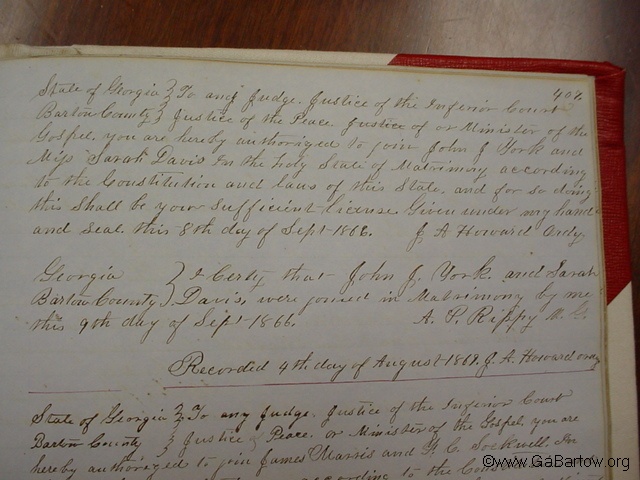 409.
State of Georgia } To any Judge. Justice of the Inferior Court
Barton County } Justice of the Peace. Justice of or Minister of the
Gospel. you are hereby authorized to join John J York and
Miss Sarah Davis In the holy State of Matrimony according
to the Constitution and laws of this State. and for so doing
this Shall be your Sufficient license Given under my hand
and Seal this 8th day of Sept 1866. J A Howard Ordy
Georgia } I Certify that John J. York and Sarah
Barton County } Davis, were joined in Matrimony by me
this 9th day of Sept 1866. A. P. Rippy M. G.
Recorded 4th day of August 1869. J. A. Howard ordy
State of Georgia } To any Judge. Justice of the Inferior Court
Barton County } Justice of Peace. or Minister of the Gospel. you are
hereby authorized to join James Marris and C. Sockwell In
according to the
©www.GaBartow.org